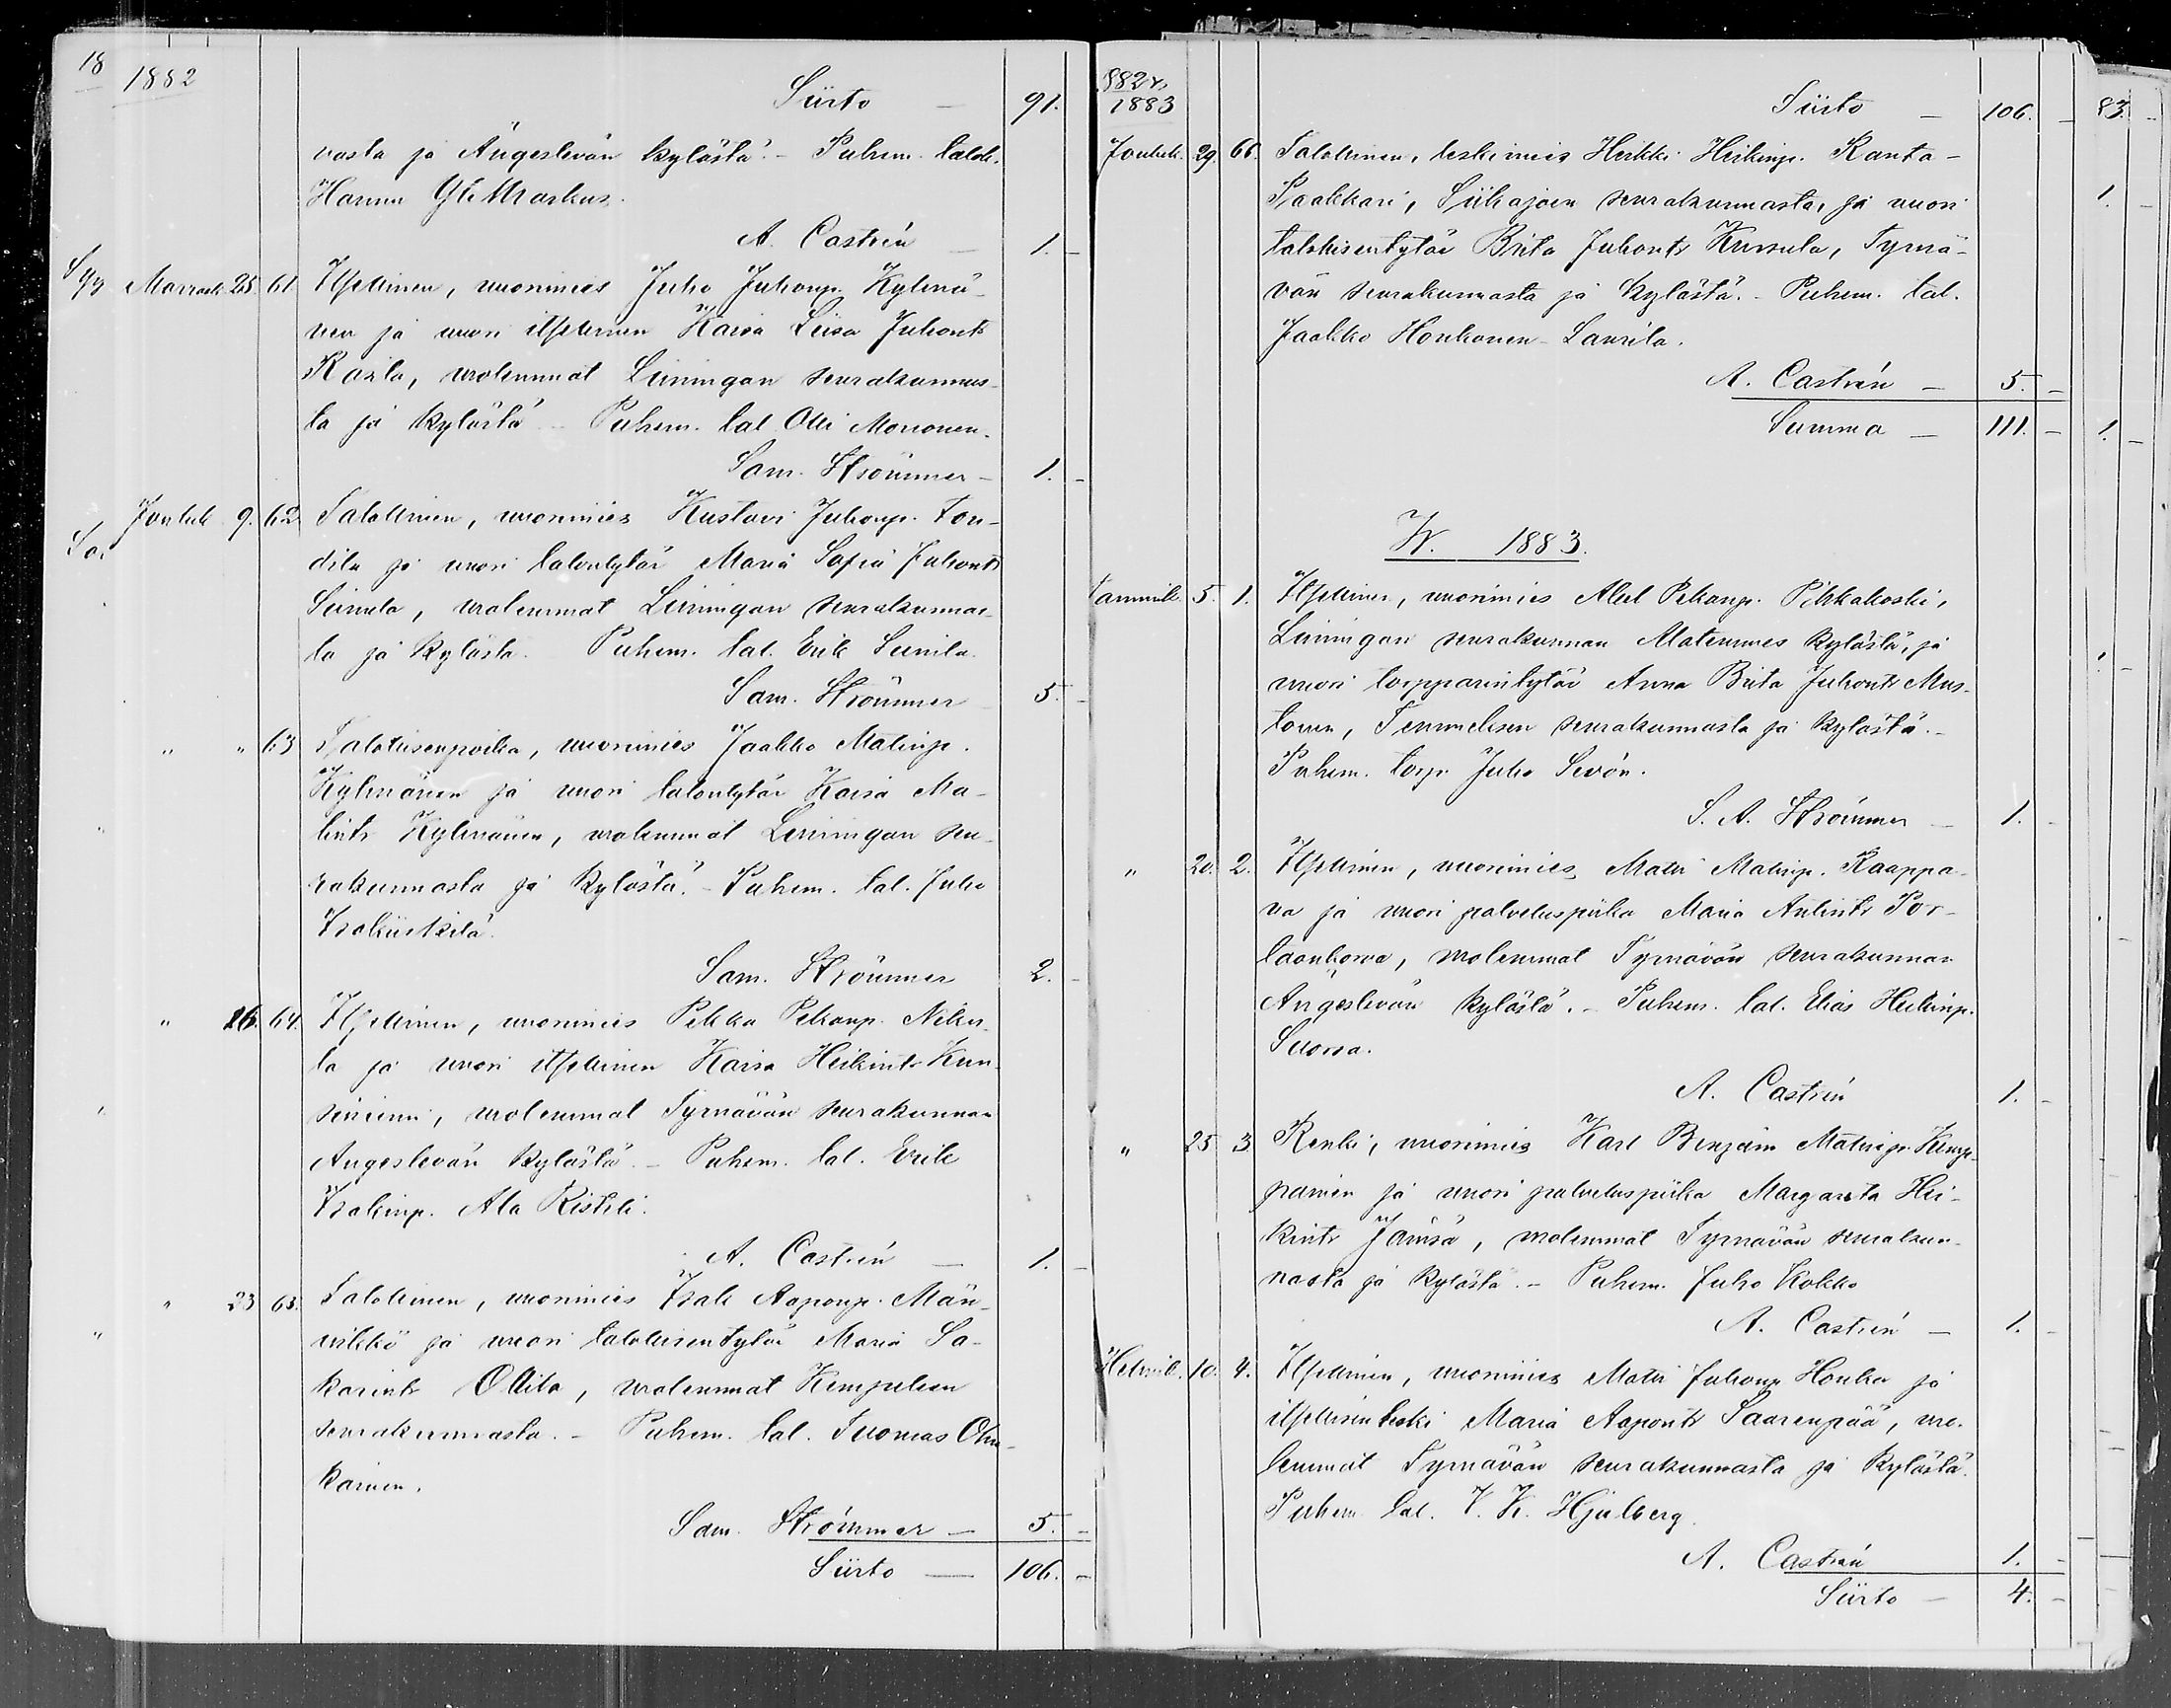 1882
Siirto — 91.
vasta ja Ängeslevän kylästä. - Puhem. talok.
Hannu Yli Markus.
A. Castrén — 1. -
Marrask. 25. 61. Itsellinen, nuorimies Juho Juhonp. Kylmä-
nen ja nuori itsellinen Kaisa Liisa Juhontr
Raila, molemmat Limingan seurakunnas-
ta ja kylästä - Puhem. tal. Olli Mononen.
Sam. Strömmer - 1. -
Jouluk. 9. 62. Talollinen, nuorimies Kustavi Juhonp. Fon-
dila ja nuori talontytär Maria Sofia Juhontr
Siimola, molemmat Limingan seurakunnas-
ta ja kylästä. Puhem. tal. Erik Sunila.
Sam. Strömmer 5. -
" " 63. Talollisenpoika, nuorimies Jaakko Matinp.
Kylmänen ja nuori talontytär Kaisa Ma-
tintr Kylmänen, molemmat Limingan seu-
rakunnasta ja kylästä. - Puhem. tal. Juho
Isokiiskilä.
Sam. Strömmer 2. -
" 16. 64. Itsellinen, nuorimies Pekka Pekanp. Niku-
la ja nuori itsellinen Kaisa Heikintr Kun-
seiniemi, molemmat Tyrnävän seurakunnan
Ängeslevän kylästä. - Puhem. tal. Erik
Isakinp. Ala Ristili.
A. Castrén — 1. -
" 23. 65. Talollinen, nuorimies Isak Aaponp. Män-
nikkö ja nuori talollisentytär Maria Sa-
karintr Ollila, molemmat Kempeleen
seurakunnasta. - Puhem. tal. Tuomas Ohu-
kainen.
Sam. Strömmer — 5. -
Siirto — 106. -
1882 &
1883
Siirto — 106. - 83. -
Jouluk. 29. 66. Talollinen, leskimies Heikki Heikinp. Kanta-
Paakkari, Siikajoen seurakunnasta, ja nuori
talollisentytär Brita Juhontr Kursula, Tyrnä-
vän seurakunnasta ja kylästä. - Puhem. tal.
Jaakko Honkanen - Laurila.
A. Castrén — 5. -
Summa — 111. - 1. -
W. 1883.
Tammik. 5. 1. Itsellinen, nuorimies Abel Pekanp. Pihkakoski,
Limingan seurakunnan Alatemmes kylästä, ja
nuori torpparintytär Anna Brita Juhontr Mus-
tonen, Temmeksen seurakunnasta ja kylästä. -
Puhem. torp. Juho Sevón.
S. A. Strömmer — 1. -
" 20. 2. Itsellinen, nuorimies Matti Matinp. Kaappa-
va ja nuori palveluspiika Maria Antintr Por-
taankorva, molemmat Tyrnävän seurakunnan
Ängeslevän kylästä. - Puhem. tal. Elias Heikinp.
Suorsa.
A. Castrén 1. -
" 25 3. Renki, nuorimies Karl Benjam Matinp. Kemp-
painen ja nuori palveluspiika Margareta Hei-
kintr Jämsä, molemmat Tyrnävän seurakun-
nasta ja kylästä. - Puhem. Juho Kokko
A. Castrén — 1. -
Helmik. 10. 4. Itsellinen, nuorimies Matti Juhonp Honka ja
itsellisen leski Maria Aapontr Saarenpää, mo-
lemmat Tyrnävän seurakunnasta ja kylästä.
Puhem. tal. V. K. Hjulberg.
A. Castrén 1. -
Siirto — 4. -